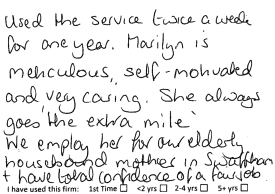 Used the service twice a week
for one year. Marilyn is
meticulous, self-motivated
and very caring. She always
goes 'the extra mile'
We employ her for our elderly
housebound mother in Swaffham
+ have total confidence of a fair job.
I have used this firm: 1st Time ☐ <2 yrs ☐ 2-4 yrs ☐ 5+ yrs ☐